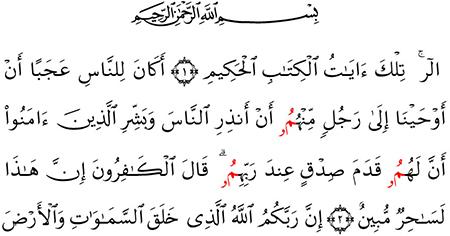 بِسْمِ اللَّهِ الرَّحْمَٰنِ الرَّحِيمِ
الٓر ۚ تِلْكَ ءَايَـٰتُ ٱلْكِتَـٰبِ ٱلْحَكِيمِ ۝١ أَكَانَ لِلنَّاسِ عَجَبًا أَنْ
أَوْحَيْنَا إِلَىٰ رَجُلٍ مِّنْهُمُۥ أَنْ أَنذِرِ النَّاسَ وَبَشِّرِ ٱلَّذِينَ ءَامَنُوا۟
أَنَّ لَهُمُۥ قَدَمَ صِدْقٍ عِندَ رَبِّهِمُۥ ۗ قَالَ ٱلْكَـٰفِرُونَ إِنَّ هَـٰذَا
لَسَـٰحِرٌ مُّبِينٌ ۝٢ إِنَّ رَبَّكُمُ ٱللَّهُ ٱلَّذِى خَلَقَ ٱلسَّمَـٰوَٰتِ وَٱلْأَرْضَ